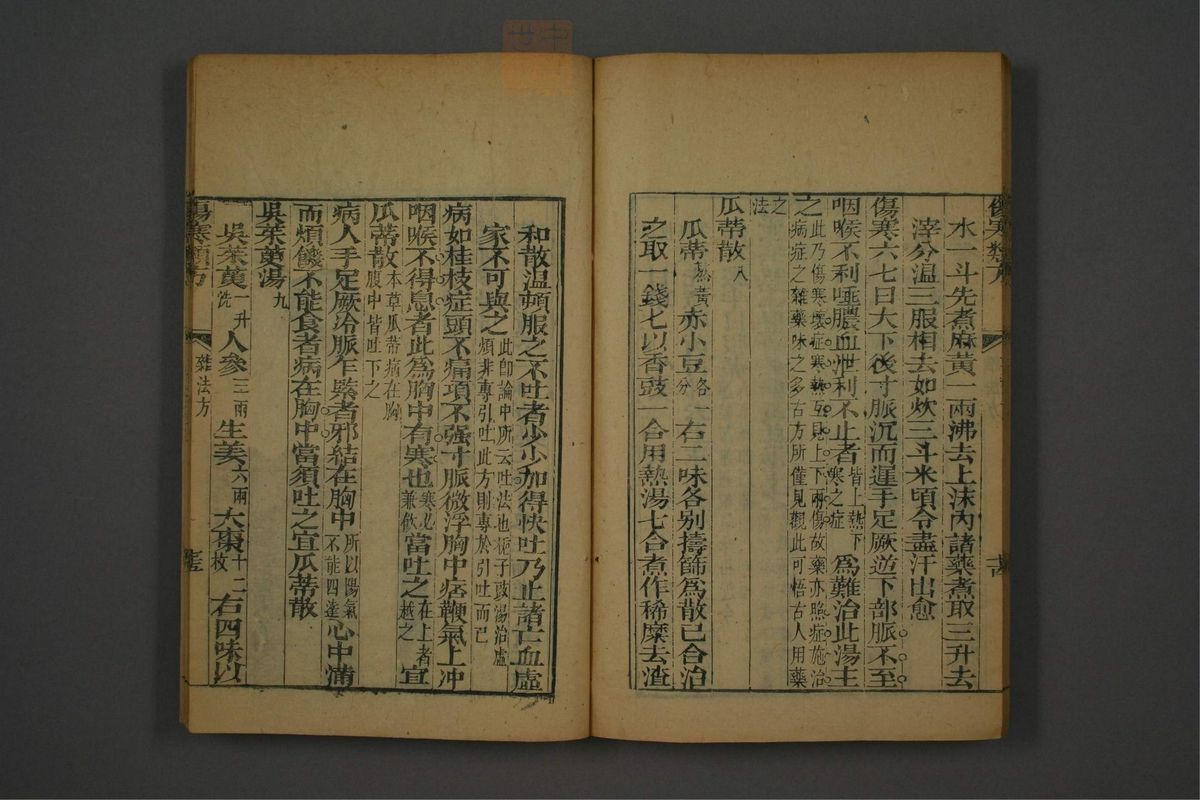 傷寒類方
水一斗先煮麻黃一兩沸去上沫內諸藥煮取三升去
滓分溫三服相去如炊三斗米頃令盡汗出愈
傷寒六七日大下後寸脈沉而遲手足厥逆下部脈不至
咽喉不利唾膿血泄利不止者皆上熱下寒之症為難治此湯主
之此乃傷寒壞症寒熱互見上下兩傷故藥亦照症施治病症之雜藥味之多古方所僅見觀此可悟古人用藥
之法
瓜蒂散八
瓜蒂熬黃赤小豆各一分右二味各別擣篩為散已合治
之取一錢匕以香豉一合用熱湯七合煮作稀糜去渣
和散溫頓服之不吐者少少加得快吐乃止諸亡血虛
家不可與之此即論中所云吐法也梔子豉湯治虛煩非專引吐此方則專於引吐而已
病如桂枝症頭不痛項不强寸脈微浮胸中痞鞕氣上冲
咽喉不得息者此為胸中有寒也寒必兼飲當吐之在上者越之宜
瓜蒂散本草瓜蒂病在胸腹中皆吐下之
病人手足厥冷脈乍緊者邪結在胸中所以陽氣不能四達心中滿
而煩饑不能食者病在胸中當須吐之宜瓜蒂散
吳茱萸湯九
吳茱萸一升洗人參三兩生姜六兩大棗十二枚右四味以
傷寒類方
雜法方